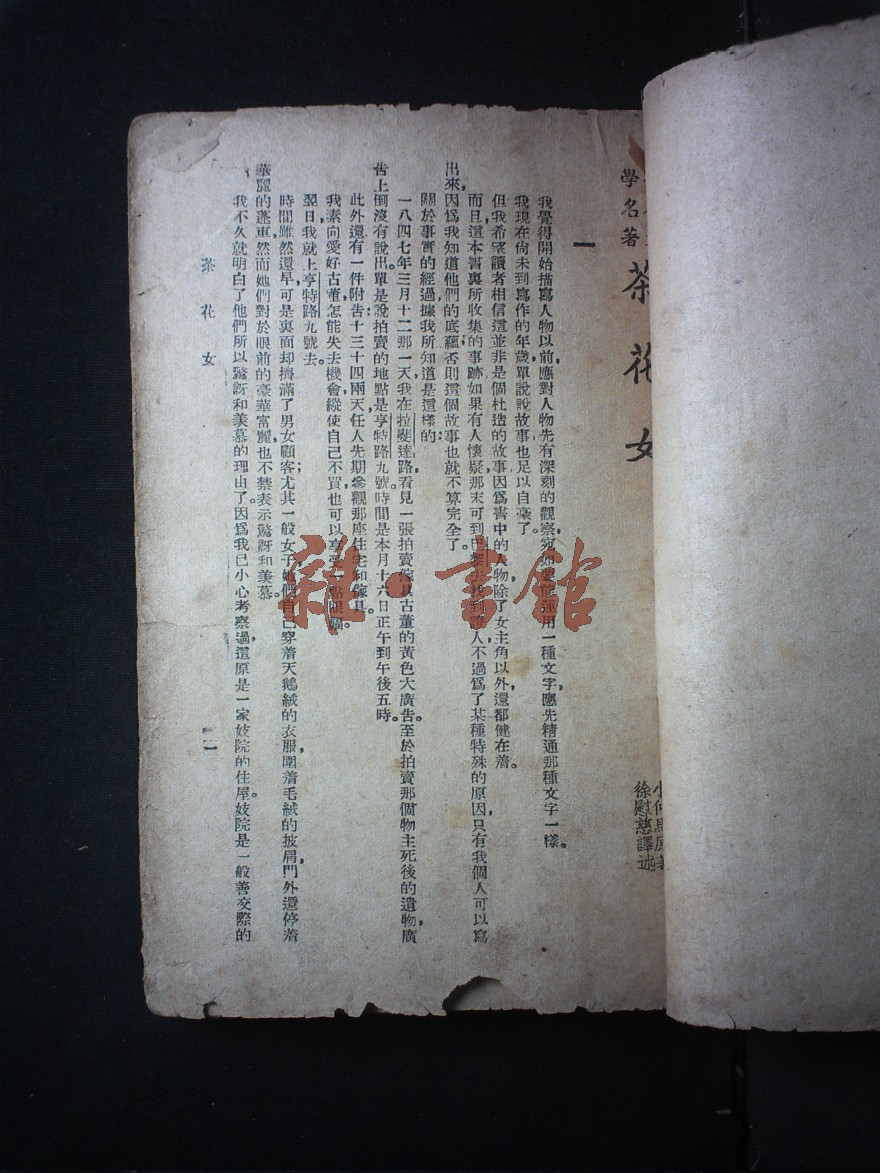 學名著
茶花女
徐慰慈譯述
一
我覺得開始描寫人物以前,應對人物先有深刻的觀察,宛如要運用一種文字,應先精通那種文字一樣。
我現在尚未到寫作的年歲,單說說故事也足以自豪了。
但我希望讀者相信這並非是個杜造的故事,因爲書中的人物除了女主角以外,還都健在着。
而且這本書裏所收集的事跡,如果有人懷疑,那末可到巴黎去找到證人,不過爲了某種特殊的原因,只有我個人可以寫
出來,因爲我知道他們的底蘊,否則這個故事也就不算完全了。
關於事實的經過,據我所知道是這樣的:
一八四七年三月十二那一天,我在拉斐達路看見一張拍賣傢具古董的黃色大廣告。至於拍賣那個物主死後的遺物,廣
告上倒沒有說出,單是說拍賣的地點是亨特路九號,時間是本月十六日正午到午後五時。
此外還有一件附告:十三十四兩天,任人先期參觀那座住宅和傢具。
我素向愛好古董,怎能失去機會,縱使自己不買,也可以享受一點眼福。
翌日我就上亨特路九號去。
時間雖然還早,可是裏面却擠滿了男女顧客;尤其一般女子,她們自己穿着天鵝絨的衣服,圍着毛絨的披肩,門外還停着
華麗的蓬車,然而她們對於眼前的豪華富麗,也不禁表示驚訝和羡慕。
我不久就明白了他們所以驚訝和羡慕的理由了。因爲我已小心考察過,這原是一家妓院的住屋。妓院是一般善交際的
茶花女
一
雜書館